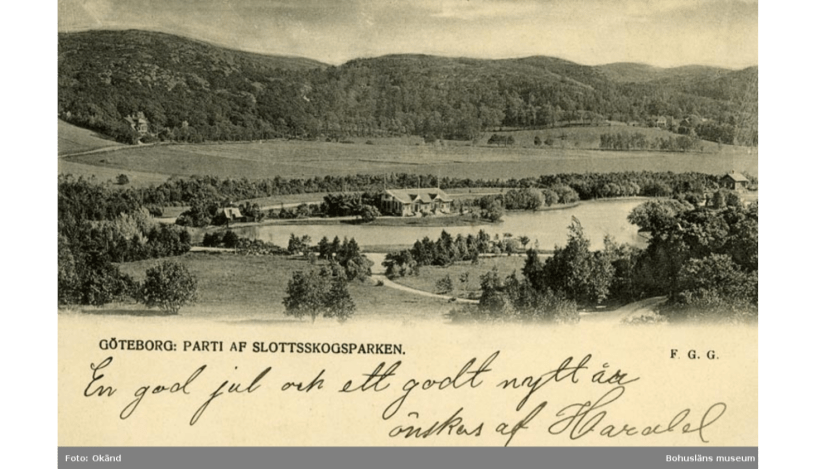 GÖTEBORG: PARTI AF SLOTTSSKOGSPARKEN.
F. G. G.
En god jul och ett godt nytt år
önskas af Harald
Foto: Okänd
Bohusläns museum